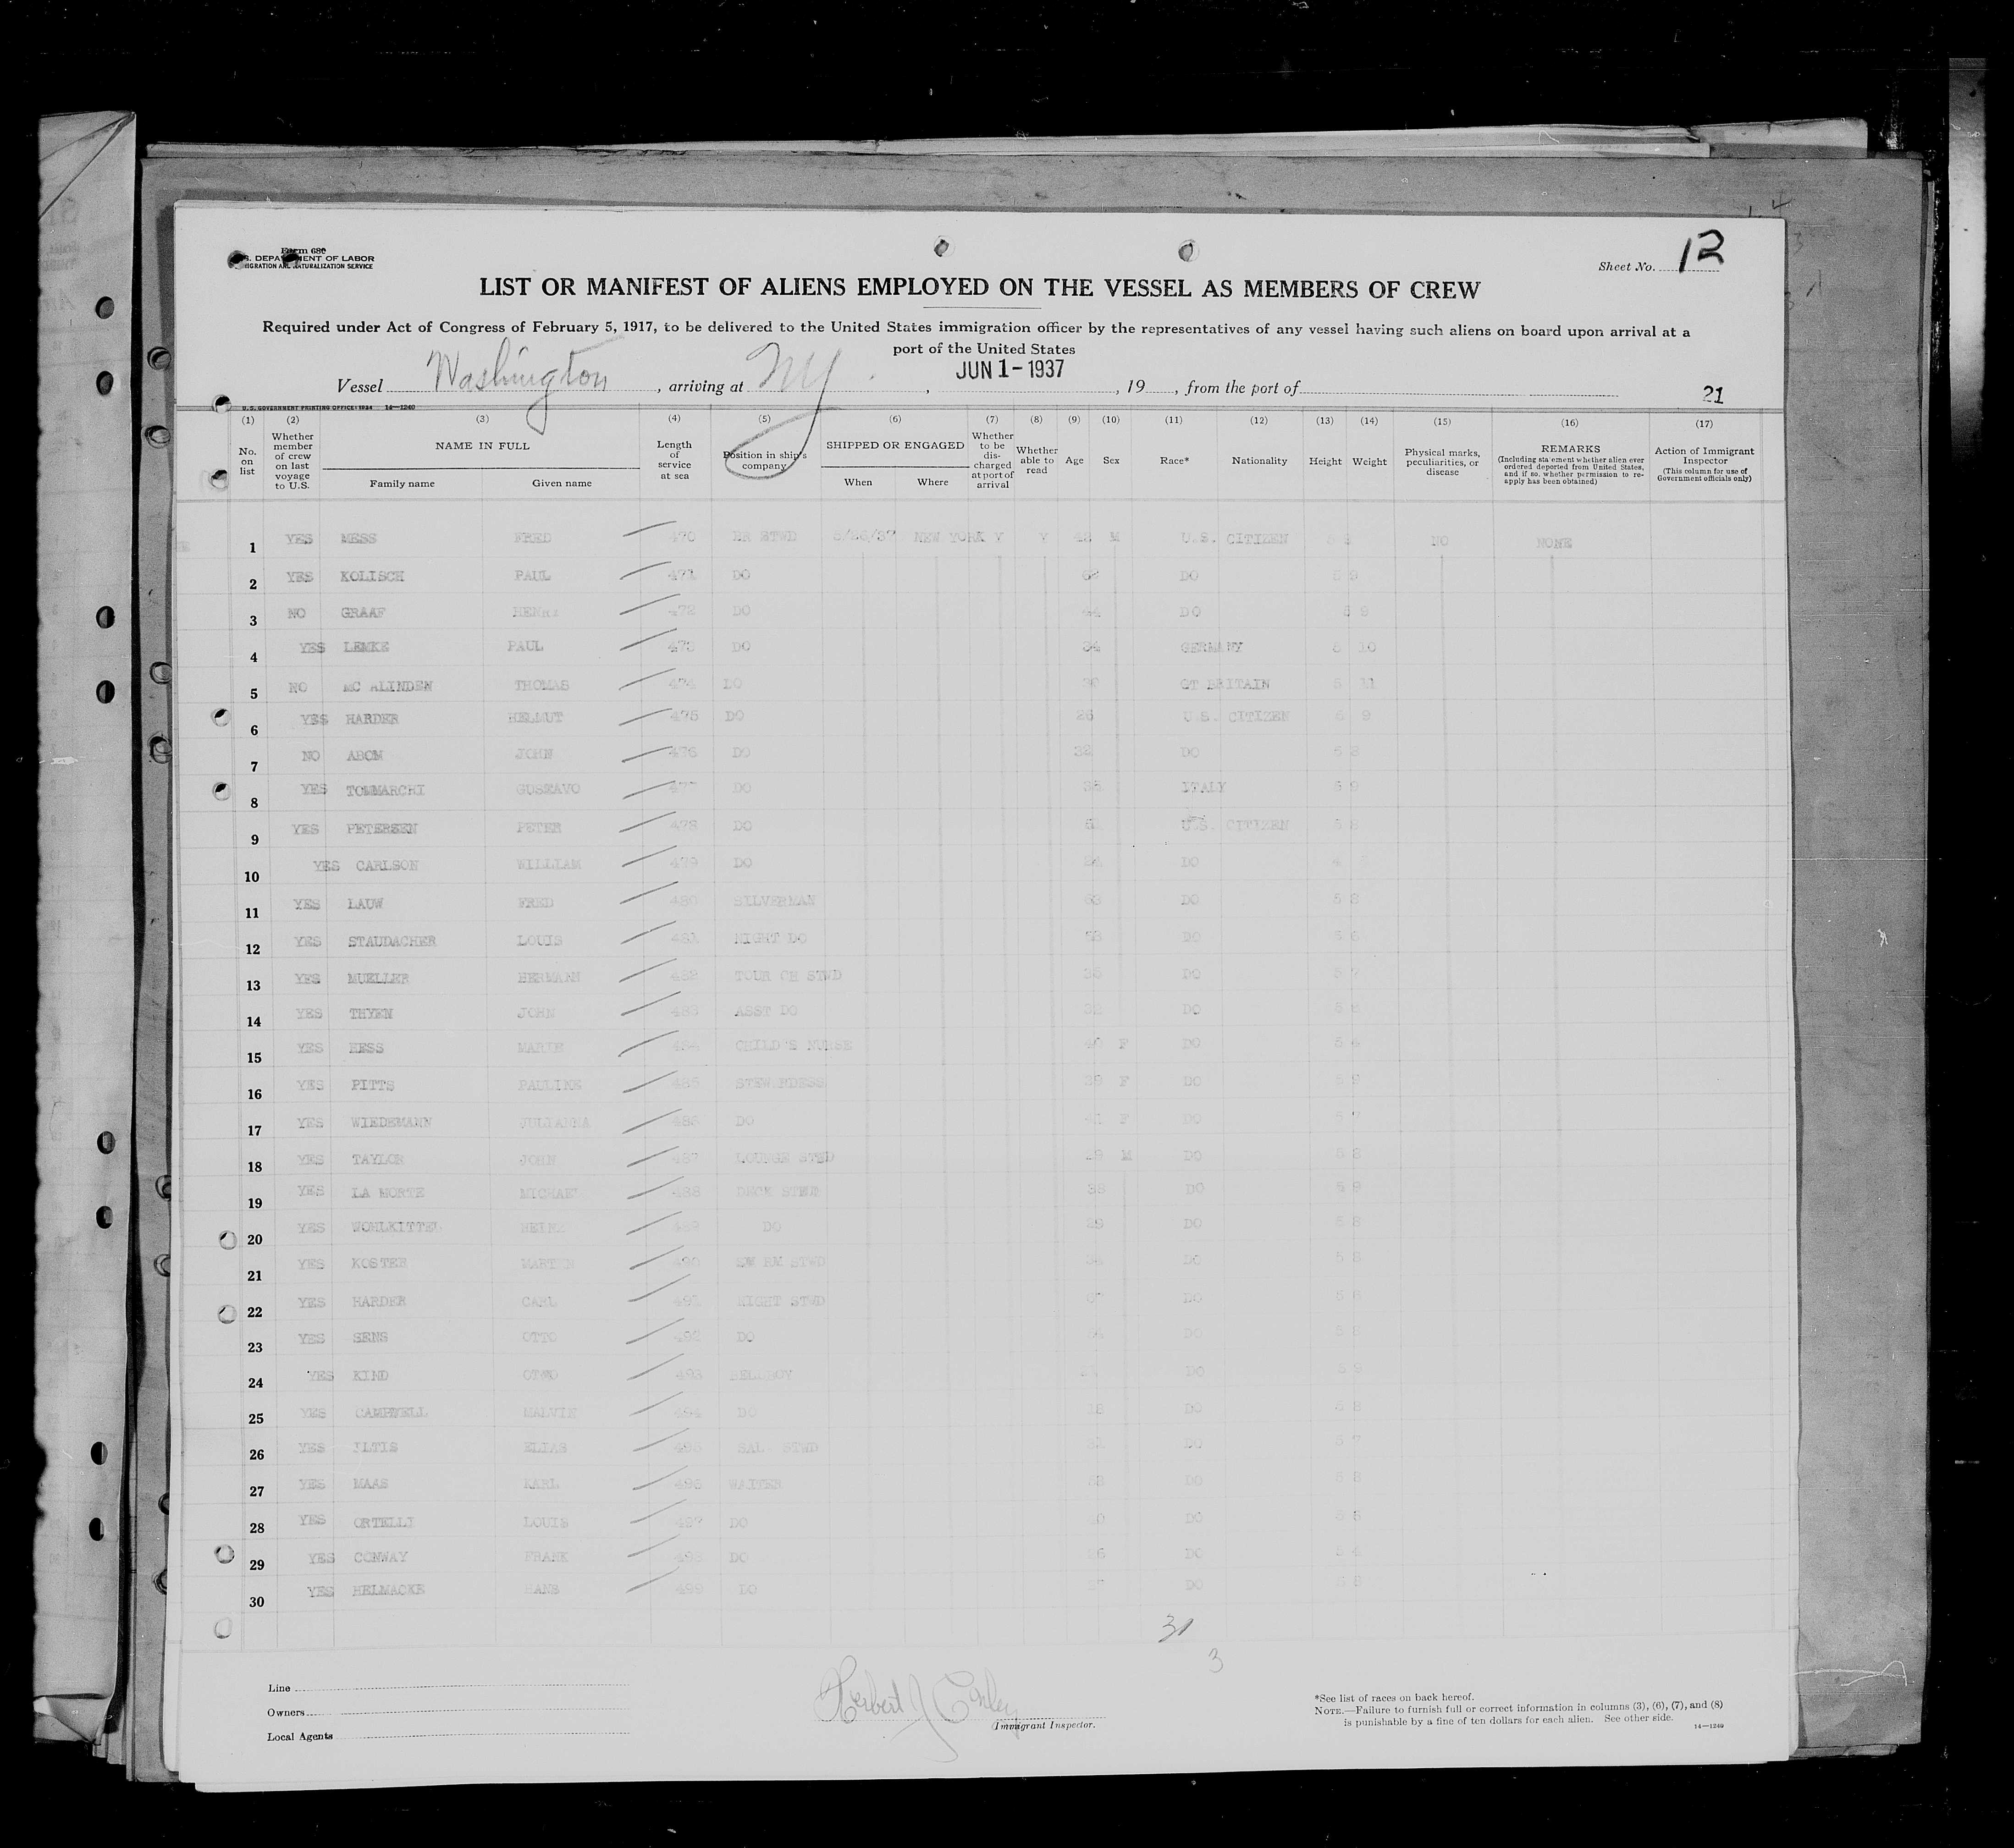 Form 680
U.S. DEPARTMENT OF LABOR
IMMIGRATION AND NATURALIZATION SERVICE
Sheet No. 12
LIST OR MANIFEST OF ALIENS EMPLOYED ON THE VESSEL AS MEMBERS OF CREW
Required under Act of Congress of February 5, 1917, to be delivered to the United States immigration officer by the representatives of any vessel having such aliens on board upon arrival at a
port of the United States
Vessel Washington, arriving at NY, JUN 1-1937, 19, from the port of
U.S. GOVERNMENT PRINTING OFFICE: 1934 14—1240 21
(1) (2) (3) (4) (5) (6) (7) (8) (9) (10) (11) (12) (13) (14) (15) (16) (17)
No. on list
Whether member of crew on last voyage to U.S.
NAME IN FULL
Family name Given name
Length of service at sea
Position in ship's company
SHIPPED OR ENGAGED
When Where
Whether to be discharged at port of arrival
Whether able to read
Age
Sex
Race*
Nationality
Height
Weight
Physical marks, peculiarities, or disease
REMARKS
(Including statement whether alien ever ordered deported from United States, and if so, whether permission to reapply has been obtained)
Action of Immigrant Inspector
(This column for use of Government officials only)
1 YES MESS FRED 470 BR STWD 5/26/37 NEW YORK Y Y 42 M U.S. CITIZEN NO NONE
2 YES KOLISCH PAUL 471 DO DO 5 9
3 NO GRAAF HENRY 472 DO DO
4 YES LEMKE PAUL 473 DO 34 GERMANY 5 10
5 NO MC ALINDEN THOMAS 474 DO GT BRITAIN 5 11
6 YES HARDER HELMUT 475 DO U.S. CITIZEN 5 9
7 NO ABOM JOHN 476 DO DO 5 8
8 YES TOMMARCHI GUSTAVO 477 DO ITALY 5 9
9 YES PETERSEN PETER 478 DO U.S. CITIZEN 5 8
10 YES CARLSON WILLIAM 479 DO DO
11 YES LAUW FRED 480 SILVERMAN 63 DO 5 8
12 YES STAUDACHER LOUIS 481 NIGHT DO DO 5 6
13 YES MUELLER HERMANN 482 TOUR CH STWD DO 5 7
14 YES THYEN JOHN 483 ASST DO DO
15 YES HESS MARIE 484 CHILD'S NURSE F DO 5 4
16 YES PITTS PAULINE 485 STEWARDESS 39 F DO 5 9
17 YES WIEDEMANN JULIANNA 486 DO F DO
18 YES TAYLOR JOHN 487 LOUNGE STWD M DO 5 8
19 YES LA MORTE MICHAEL 488 DECK STWD 38 DO
20 YES WOHLKITTEL HEINZ 489 DO 29 DO 5 8
21 YES KOSTER MARTIN 490 SM RM STWD DO 5 8
22 YES HARDER CARL 491 NIGHT STWD DO 5 6
23 YES SENS OTTO 492 DO DO 5 8
24 YES KIND OTTO 493 BELLBOY DO 5 9
25 YES CAMPBELL MALVIN 494 DO DO 5 8
26 YES ILTIS ELIAS 495 SAL. STWD DO 5 7
27 YES MAAS KARL 496 WAITER DO 5 8
28 YES ORTELLI LOUIS 497 DO DO
29 YES CONWAY FRANK 498 DO 26 DO 5 4
30 YES HELMACKE HANS 499 DO DO
31
3
Line
Owners
Local Agents
Herbert J Conley
Immigrant Inspector.
*See list of races on back hereof.
NOTE.—Failure to furnish full or correct information in columns (3), (6), (7), and (8)
is punishable by a fine of ten dollars for each alien. See other side.
14—1240